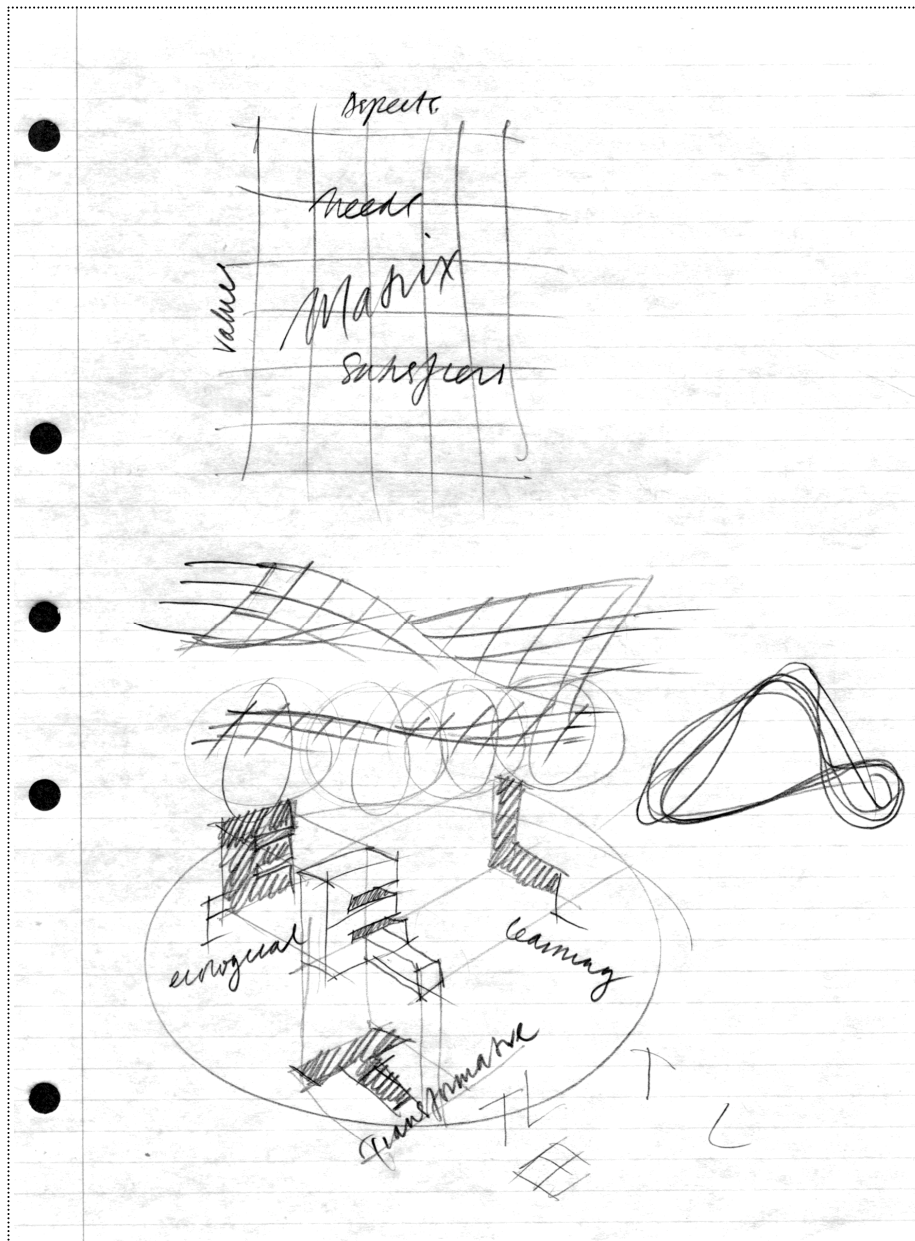 Aspects
Needs
Values
Matrix
Satisfiers
ecological
learning
Transformative
TL
T
L